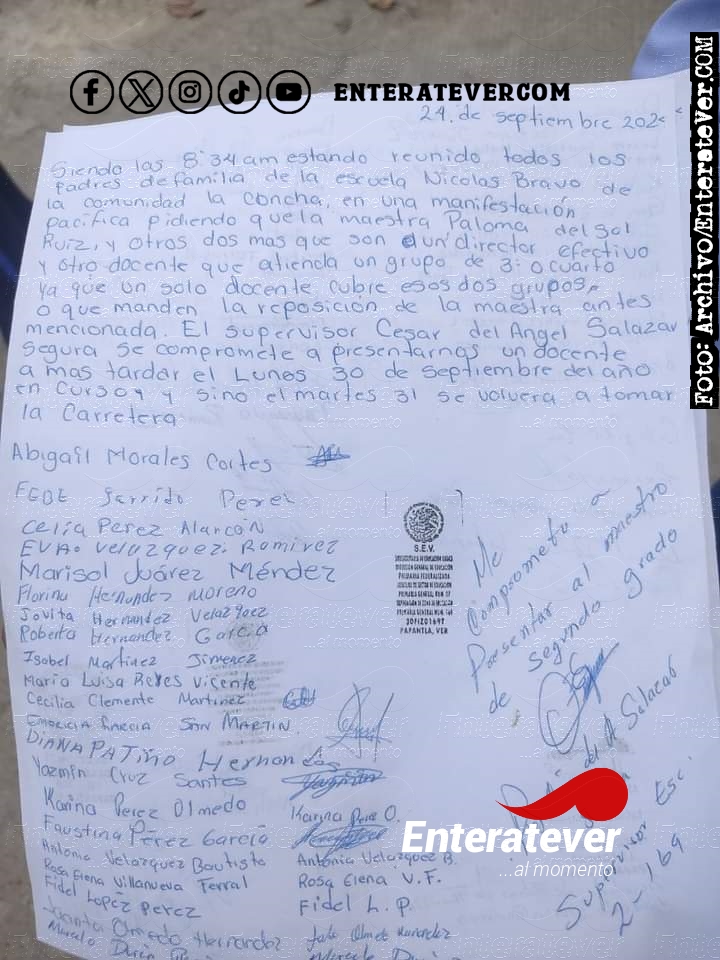 ENTERATEVER.COM
Foto: Archivo/Enteratever.COM
24. de septiembre 202
Siendo las 8:34 am estando reunido todos los
padres de familia de la escuela Nicolas Bravo de
la comunidad la Concha, en una manifestación
pacifica pidiendo que la maestra Paloma del Sol
Ruiz, y otros dos mas que son un director efectivo
y otro docente que atienda un grupo de 3: o cuarto
ya que un solo docente cubre esos dos grupos,
o que manden la reposición de la maestra antes
mencionada. El supervisor Cesar del Angel Salazar
Segura se compromete a presentarnas un docente
a mas tardar el Lunes 30 de septiembre del año
en curso y sino el martes 31 se volvera a tomar
la Carretera
Abigail Morales Cortes
FEBE Garrido Perez
Celia Perez Alarcón
EVA. Velazquez. Ramirez
Marisol Juárez Méndez
Florina Hernandez Moreno
Jovita Hernandez Velazquez
Roberta Hernandez Garcia
Isabel Martinez Jimenez
Maria Luisa Reyes Vicente
Cecilia Clemente Martinez
EMERICIA GARCIA SAN MARTIN.
DIANA PATIÑO Hernandes
Yazmin Cruz Santes
Karina Perez Olmedo Karina Perez O.
Faustina Pérez Garcia
Antonia Velazquez Bautista Antonia Velazquez B.
Rosa Elena Villanueva Ferral Rosa Elena V.F.
Fidel Lopez Perez Fidel L.P.
Juanta Olmedo Hernandez
Marcelo Durán
S.E.V.
DIRECCIÓN GENERAL DE EDUCACIÓN
PRIMARIA FEDERALIZADA
PAPANTLA, VER
Me
Comprometo a
Presentar al maestro
de segundo grado
del A Salazar
Supervisor Esc.
2-169
Enteratever
...al momento